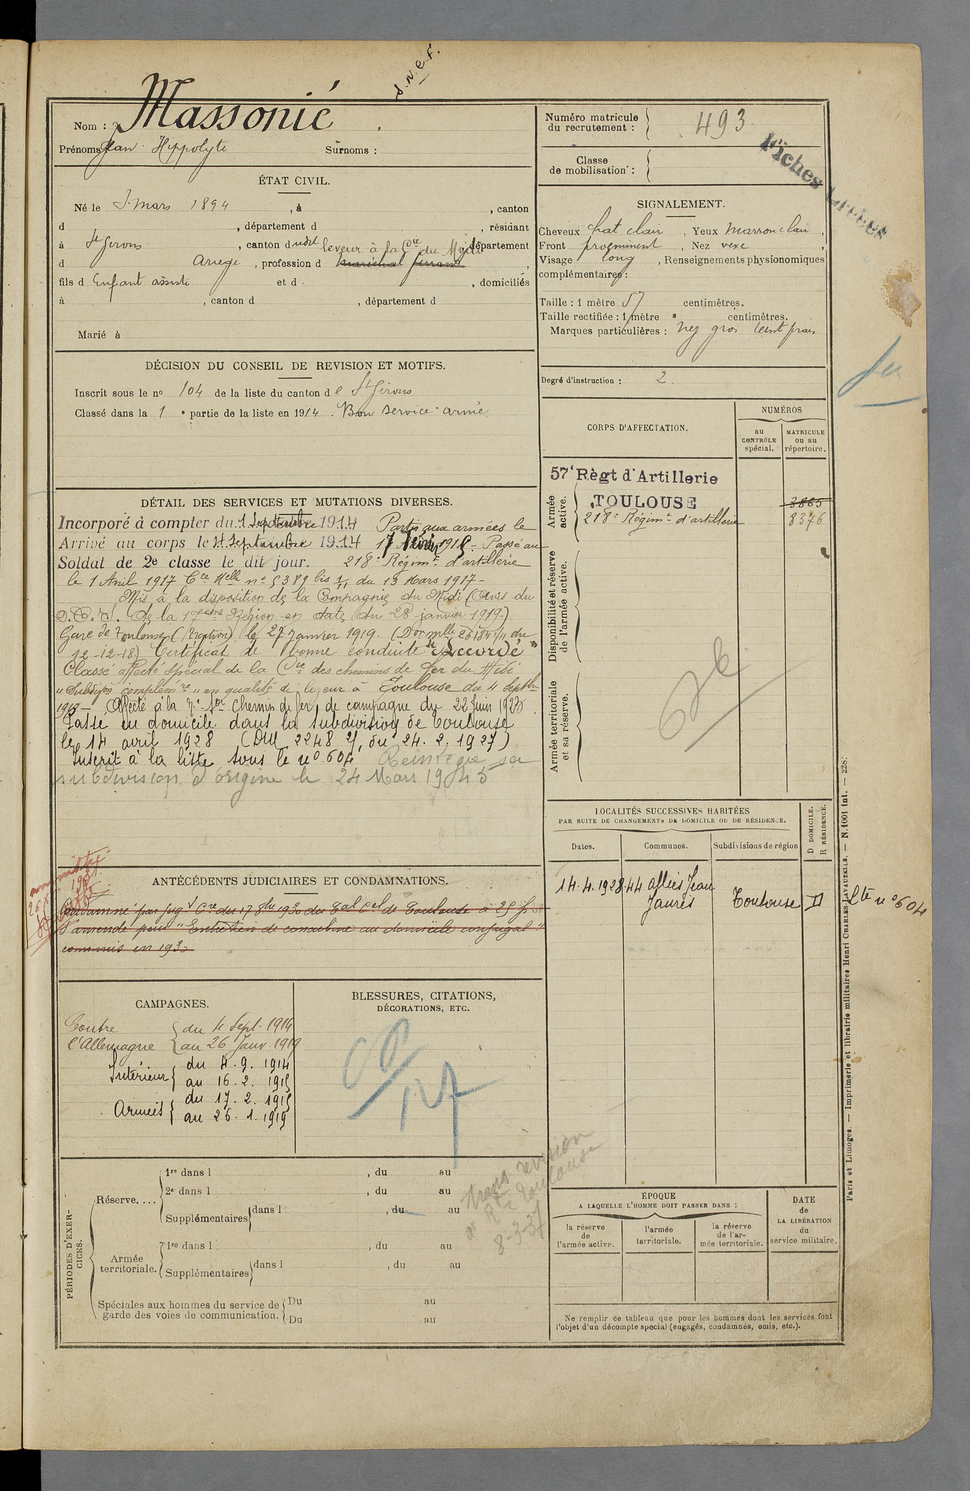 S.N.C.F.
Nom : Massonié
Prénoms Jean Hippolyte Surnoms :
ÉTAT CIVIL.
Né le 3 mars 1894, à , canton
d , département d , résidant
à St Girons, canton dudit leveur à la Cie du Midi, département
d Ariège, profession d maréchal ferrant,
fils d Enfant assisté et d , domiciliés
à , canton d , département d
Marié à
DÉCISION DU CONSEIL DE REVISION ET MOTIFS.
Inscrit sous le no 104 de la liste du canton de St Girons
Classé dans la 1e partie de la liste en 1914. Bon service armé
DÉTAIL DES SERVICES ET MUTATIONS DIVERSES.
Incorporé à compter du 1 Septembre 1914 Parti aux armées le
Arrivé au corps le 4 Septembre 1914 17 Février 1915 - Passé au
Soldat de 2e classe le dit jour. 218e Régimt d'artillerie
le 1 Avril 1917 Cre Melle no 5389 bis du 13 Mars 1917 -
Mis à la disposition de la Compagnie du Midi (Avis du
de la 17ème Région en date du 28 janvier 1919.)
Gare de Toulouse (Réception) le 27 janvier 1919. ( du
12-12-18) Certificat de bonne conduite "Accordé"
Classé affecté spécial de la Cie des chemins de fer du Midi
"Subdivon complémre" en qualité de leveur à Toulouse du 4 Septbre
Affecté à la 7e Son Chemin de fer de campagne du 22 Juin 1923
Passé en domicile dans la subdivision de Toulouse
le 14 avril 1928 (DM 2248 du 24.2.1927)
Inscrit à la liste sous le no 604 Réintègre sa
subdivision d'origine le 24 Mars 1945
ANTÉCÉDENTS JUDICIAIRES ET CONDAMNATIONS.
Condamné par jugt Cre du 17 du Tal Cel de Toulouse à 25 f
d'amende pour "Entretien de concubine au domicile conjugal"
commis en 193
CAMPAGNES.
Contre l'Allemagne { du 4 Sept. 1914
au 26 Janv. 1919
Intérieur { du 4.9.1914
au 16.2.1915
Armées { du 17.2.1915
au 26.1.1919
BLESSURES, CITATIONS,
DÉCORATIONS, ETC.
PÉRIODES D'EXERCICES.
Réserve.... 1re dans l , du au
2e dans l , du au
Supplémentaires dans l , du au
Armée territoriale. 1re dans l , du au
Supplémentaires dans l , du au
Spéciales aux hommes du service de garde des voies de communication. Du au
Du au
Toulouse
8-3-37
Numéro matricule
du recrutement : 493
Classe
de mobilisation :
Fiches
SIGNALEMENT.
Cheveux chat clair, Yeux marron clair,
Front proéminent, Nez vexe,
Visage long, Renseignements physionomiques
complémentaires :
Taille : 1 mètre 57 centimètres.
Taille rectifiée : 1 mètre centimètres.
Marques particulières : Nez gros teint frais
Degré d'instruction : 2
CORPS D'AFFECTATION.
NUMÉROS
au CONTRÔLE spécial.
MATRICULE ou au répertoire.
Armée active.
57e Règt d'Artillerie
TOULOUSE 3865
218e Régimt d'artillerie 8376
Disponibilité et réserve de l'armée active.
Armée territoriale et sa réserve.
LOCALITÉS SUCCESSIVES HABITÉES
PAR SUITE DE CHANGEMENTS DE DOMICILE OU DE RÉSIDENCE.
Dates. Communes. Subdivisions de région D. DOMICILE. R. RÉSIDENCE.
14.4.1928 44 allées Jean Jaurès Toulouse D Lte no 604
ÉPOQUE
A LAQUELLE L'HOMME DOIT PASSER DANS :
la réserve de l'armée active.
l'armée territoriale.
la réserve de l'armée territoriale.
DATE
de
LA LIBÉRATION
du
service militaire.
Ne remplir ce tableau que pour les hommes dont les services font
l'objet d'un décompte spécial (engagés, condamnés, omis, etc.).
Paris et Limoges. — Imprimerie et librairie militaires Henri CHARLES-LAVAUZELLE. — N. 1001 int. — 228.